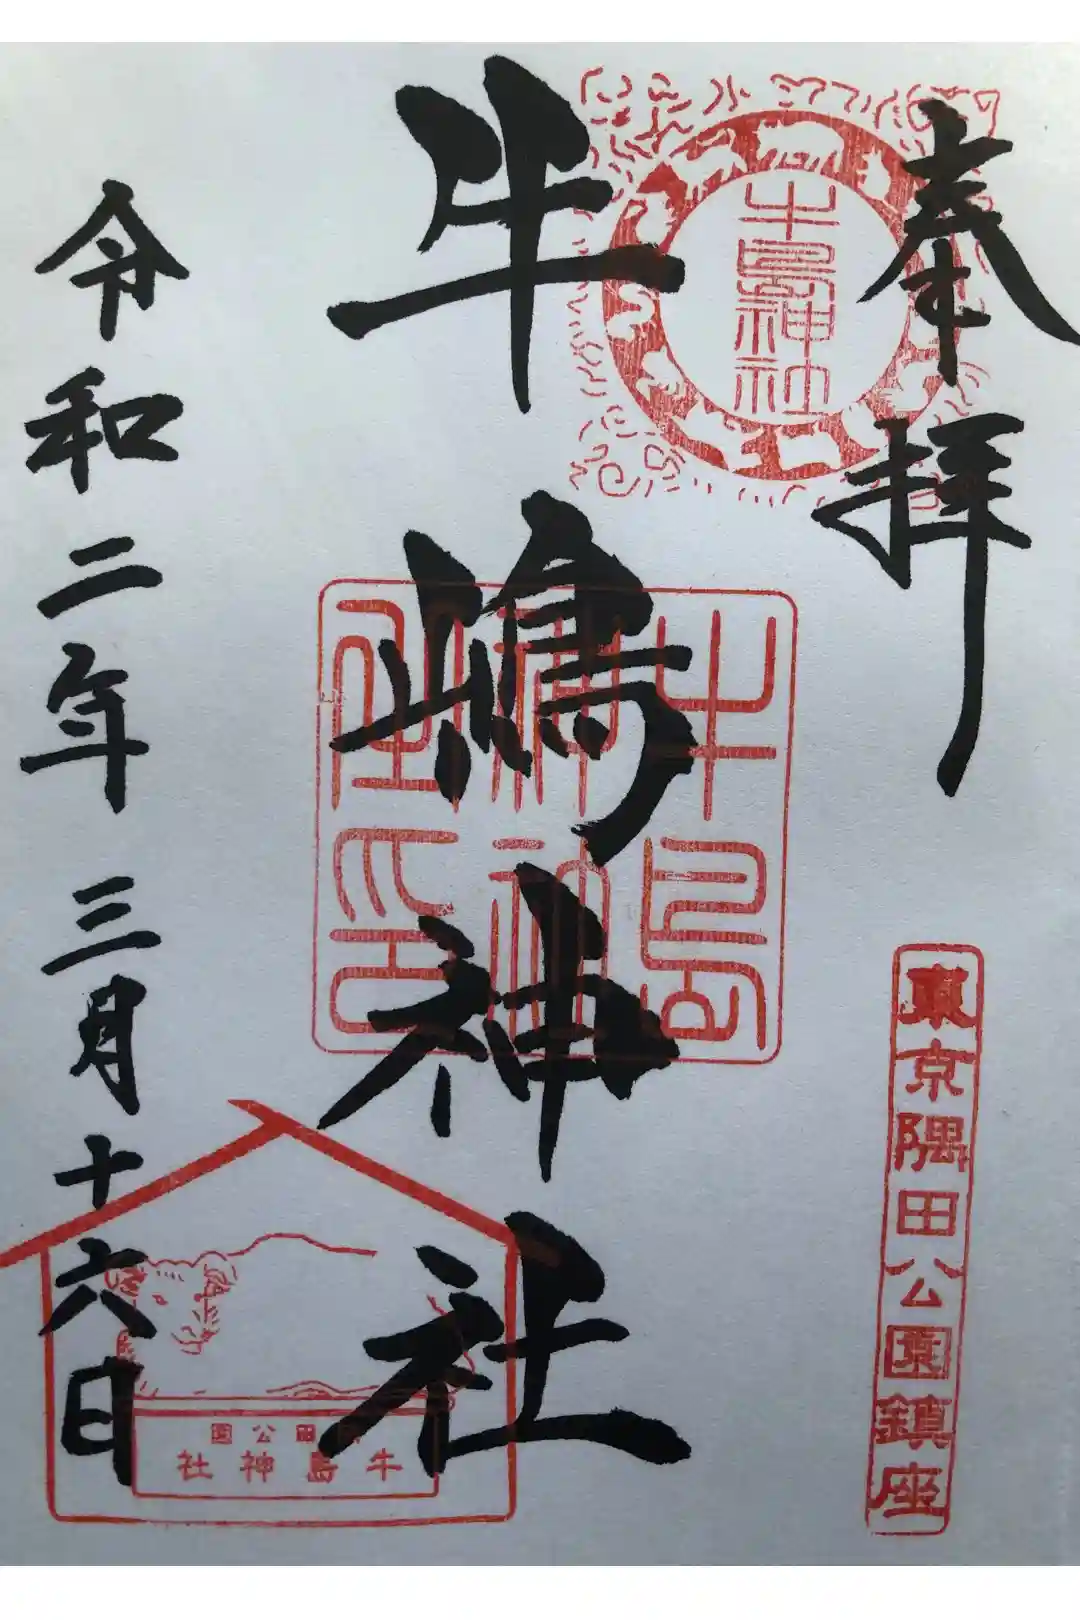 奉拝
牛島神社
東京隅田公園鎮座
牛嶋神社
牛島
神
印
公園
牛島神社
令和二年三月十六日